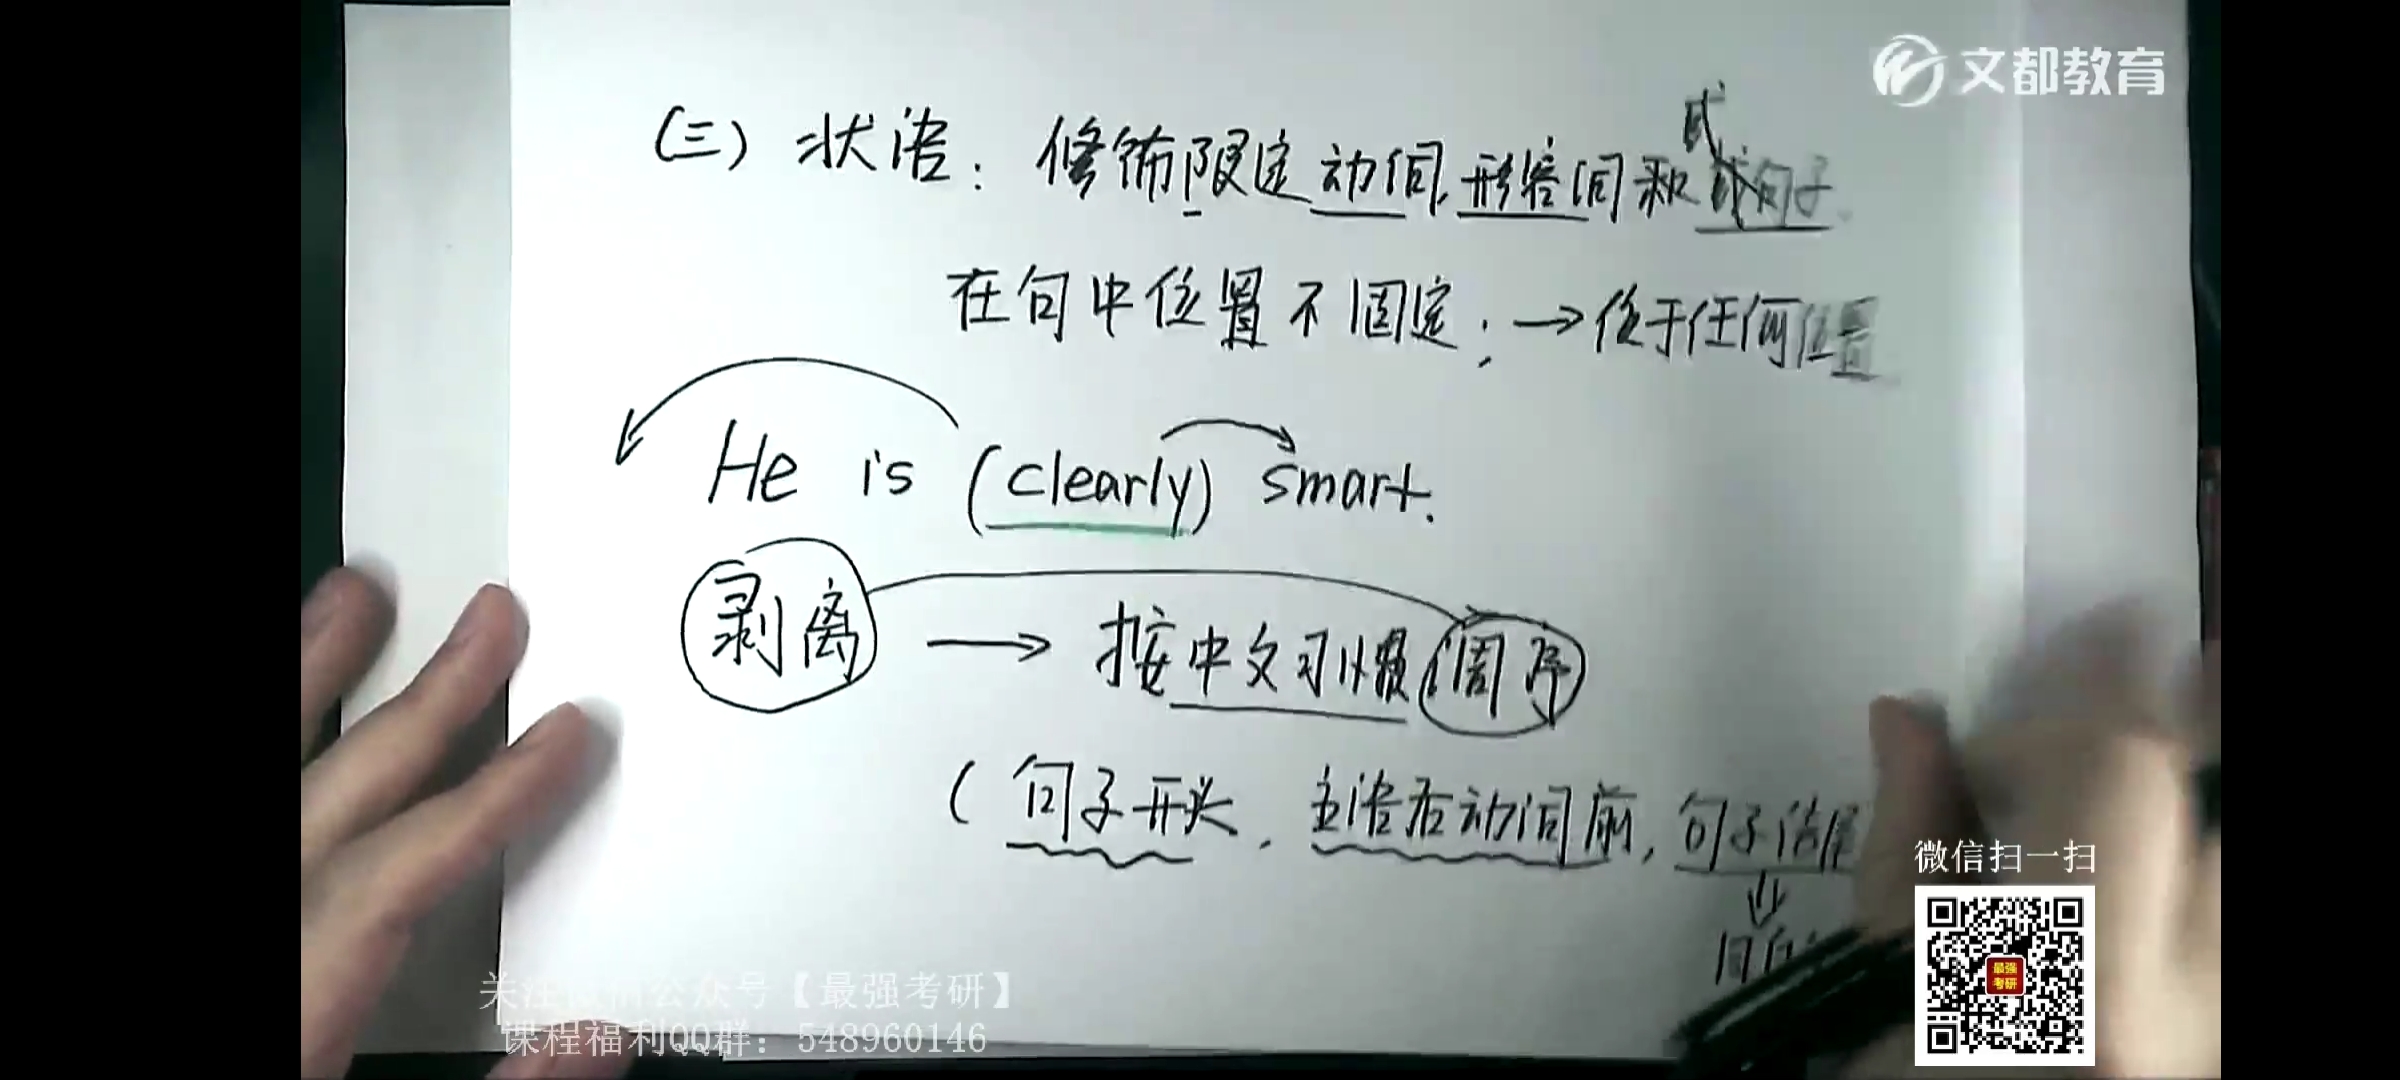 文都教育
(三) 状语: 修饰限定动词,形容词和或句子.
在句中位置不固定; → 位于任何位置
He is (clearly) smart.
剥离 → 按中文习惯调序
( 句子开头, 主语后动词前, 句子结尾
微信扫一扫
最强考研
关注微信公众号【最强考研】
课程福利QQ群: 548960146